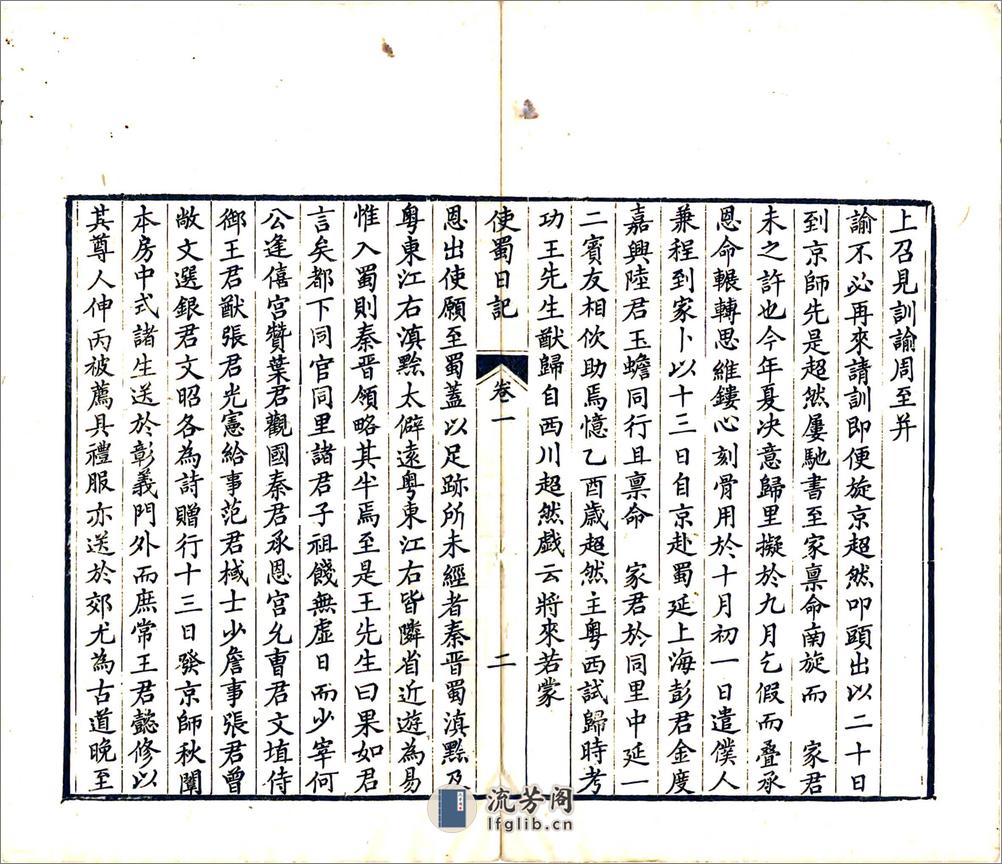 上召見訓諭周至并
諭不必再來請訓即便旋京超然叩頭出以二十日
到京師先是超然屢馳書至家稟命南旋而　家君
未之許也今年夏決意歸里擬於九月乞假而疊承
恩命輾轉思維鏤心刻骨用於十月初一日遣僕人
兼程到家卜以十三日自京赴蜀延上海彭君金度
嘉興陸君玉蟾同行且稟命　家君於同里中延一
二賓友相佽助焉憶乙酉歲超然主粵西試歸時考
功王先生猷歸自西川超然戲云將來若蒙
使蜀日記　卷一　二
恩出使願至蜀蓋以足跡所未經者秦晉蜀滇黔及
粵東江右滇黔太僻遠粵東江右皆隣省近遊為易
惟入蜀則秦晉領略其半焉至是王先生曰果如君
言矣都下同官同里諸君子祖餞無虛日而少宰何
公逢僖宮贊葉君觀國秦君承恩宮允曹君文埴侍
御王君猷張君光憲給事范君棫士少詹事張君曾
敞文選銀君文昭各為詩贈行十三日發京師秋闈
本房中式諸生送於彰義門外而庶常王君懿修以
其尊人伸丙被薦具禮服亦送於郊尤為古道晚至
流芳阁
lfglib.cn